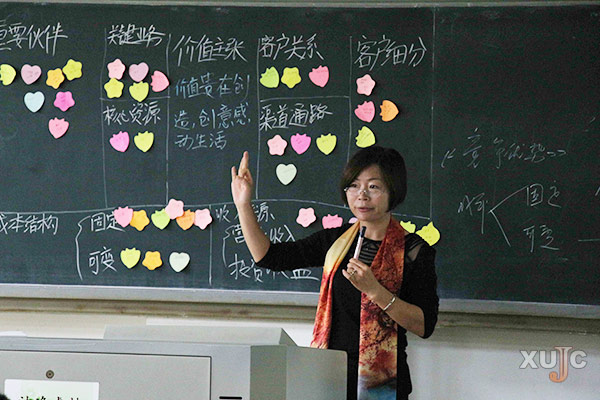 重要伙伴
关键业务
价值主张
客户关系
客户细分
价值贵在创
造,创意感
动生活
核心资源
渠道通路
成本结构
固定
可变
营
投资收益
《竞争优势》
固定
可变
XUJC